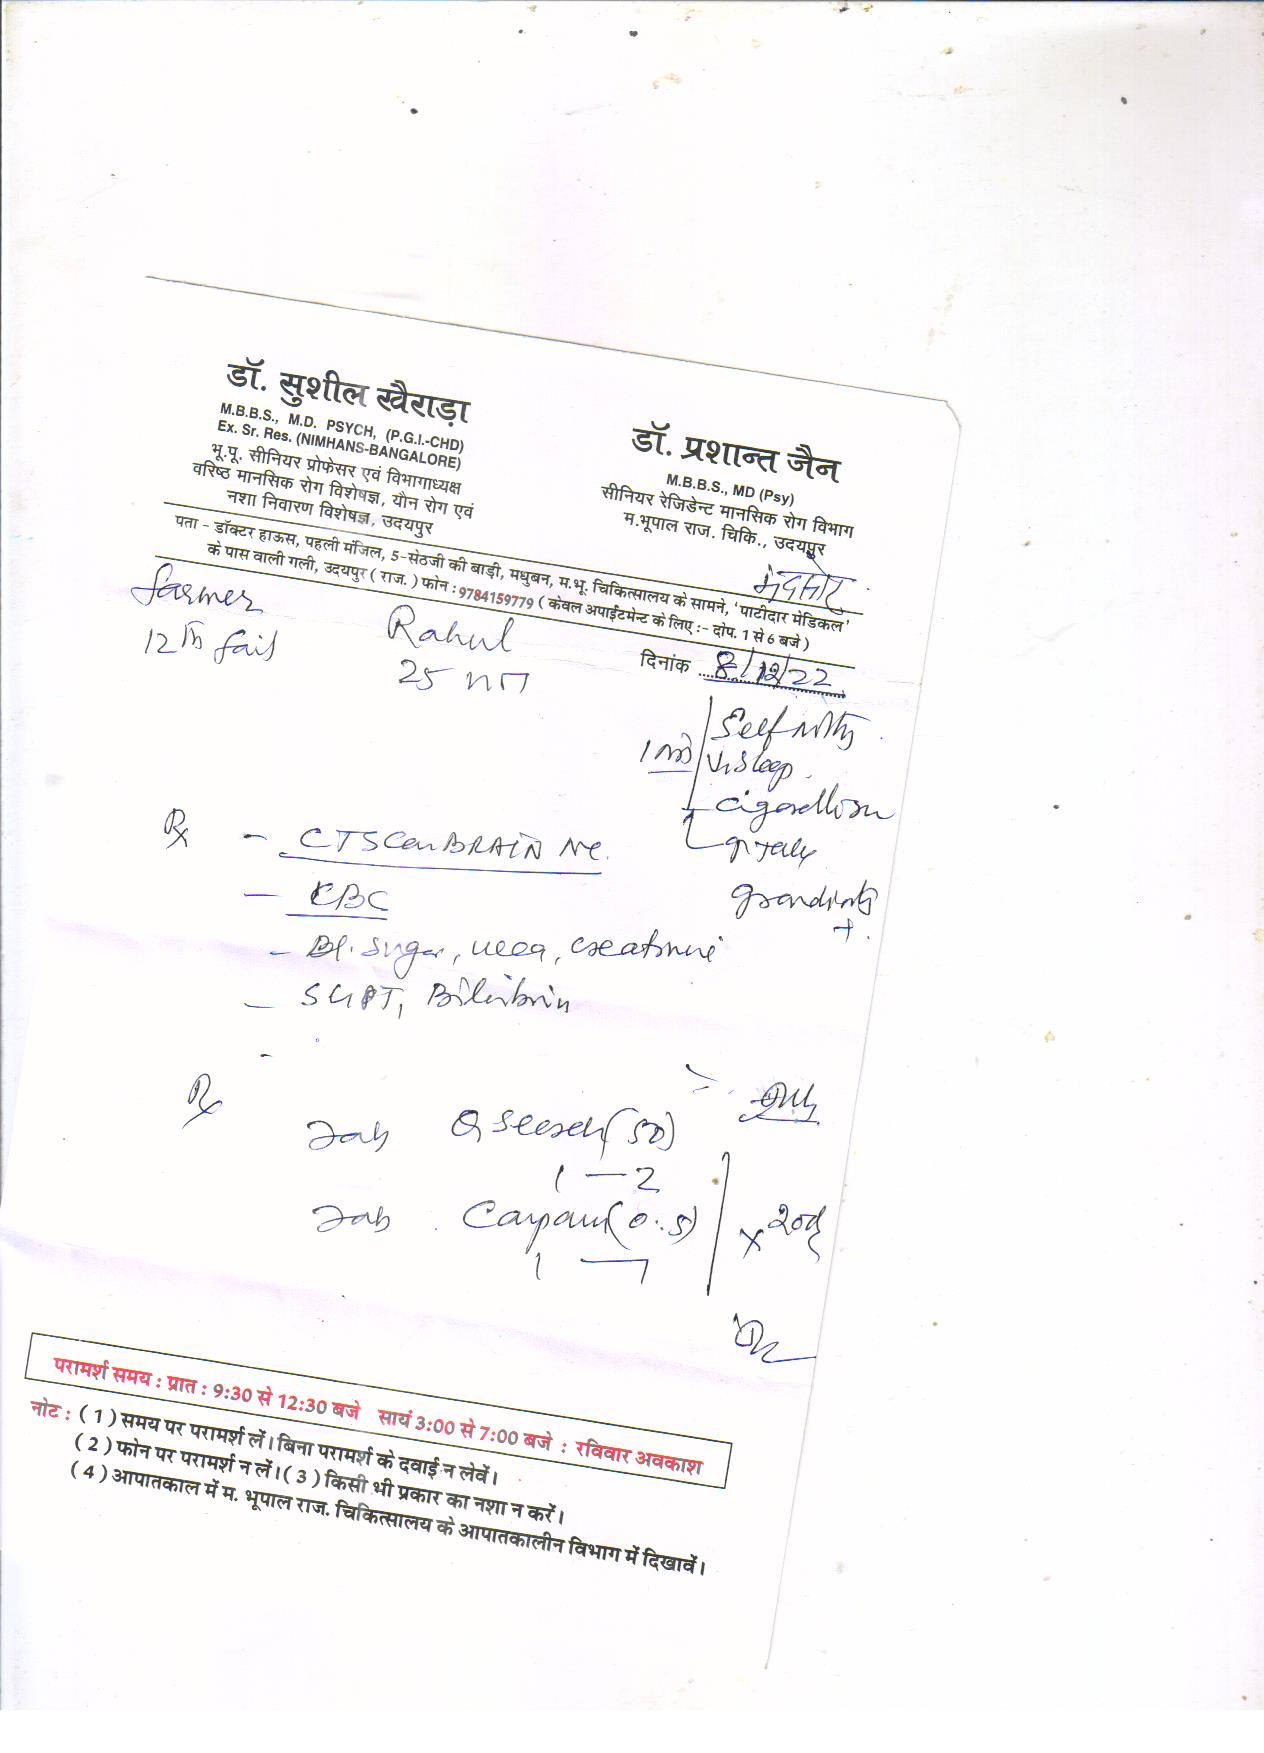 डॉ. सुशील खैराड़ा
M.B.B.S., M.D. PSYCH, (P.G.I.-CHD)
Ex. Sr. Res. (NIMHANS-BANGALORE)
भू.पू. सीनियर प्रोफेसर एवं विभागाध्यक्ष
वरिष्ठ मानसिक रोग विशेषज्ञ, यौन रोग एवं
नशा निवारण विशेषज्ञ, उदयपुर
डॉ. प्रशान्त जैन
M.B.B.S., MD (Psy)
सीनियर रेजिडेन्ट मानसिक रोग विभाग
म.भूपाल राज. चिकि., उदयपुर
पता - डॉक्टर हाऊस, पहली मंजिल, 5-सेठजी की बाड़ी, मधुबन, म.भू. चिकित्सालय के सामने, 'पाटीदार मेडिकल'
के पास वाली गली, उदयपुर ( राज. ) फोन : 9784159779 ( केवल अपाईंटमेन्ट के लिए :- दोप. 1 से 6 बजे )
farmer
12th fail
Rahul
25
दिनांक 8/12/22
Self
sleep
Rx
- CT Scan BRAIN
- CBC
- Bl. Sugar, urea, creatinine
- SGPT, Bilirubin
-
Rx
Tab (50)
1 — 2
Tab (0.5)
1 — 1
x 20d
परामर्श समय : प्रात : 9:30 से 12:30 बजे सायं 3:00 से 7:00 बजे : रविवार अवकाश
नोट : ( 1 ) समय पर परामर्श लें। बिना परामर्श के दवाई न लेवें।
( 2 ) फोन पर परामर्श न लें। ( 3 ) किसी भी प्रकार का नशा न करें।
( 4 ) आपातकाल में म. भूपाल राज. चिकित्सालय के आपातकालीन विभाग में दिखावें।